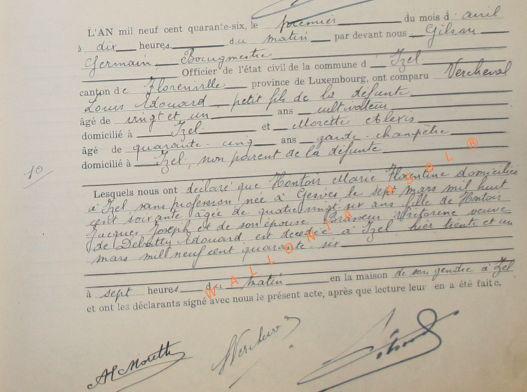 L'AN mil neuf cent quarante-six, le premier du mois d' avril
à dix heures du matin par devant nous Gilson
Germain Bourgmestre
Officier de l'état civil de la commune d Izel
canton de Florenville province de Luxembourg, ont comparu Vercheval
Louis Edouard, petit fils de la défunte
âgé de vingt et un ans cultivateur
domicilié à Izel et Morette Alexis
âgé de quarante-cinq ans garde-champêtre
domicilié à Izel, non parent de la défunte
10
Lesquels nous ont déclaré que Hontoir Marie Florentine domiciliée
à Izel sans profession, née à Gesves le sept mars mil huit
cent soixante âgée de quatre vingt six ans fille de Hontoir
Jacques Joseph et de son épouse veuve
de Edouard est décédée à Izel hier trente et un
mars mil neuf cent quarante-six
à sept heures du matin en la maison de son gendre à Izel
et ont les déclarants signé avec nous le présent acte, après que lecture leur en a été faite.
WALLONIA